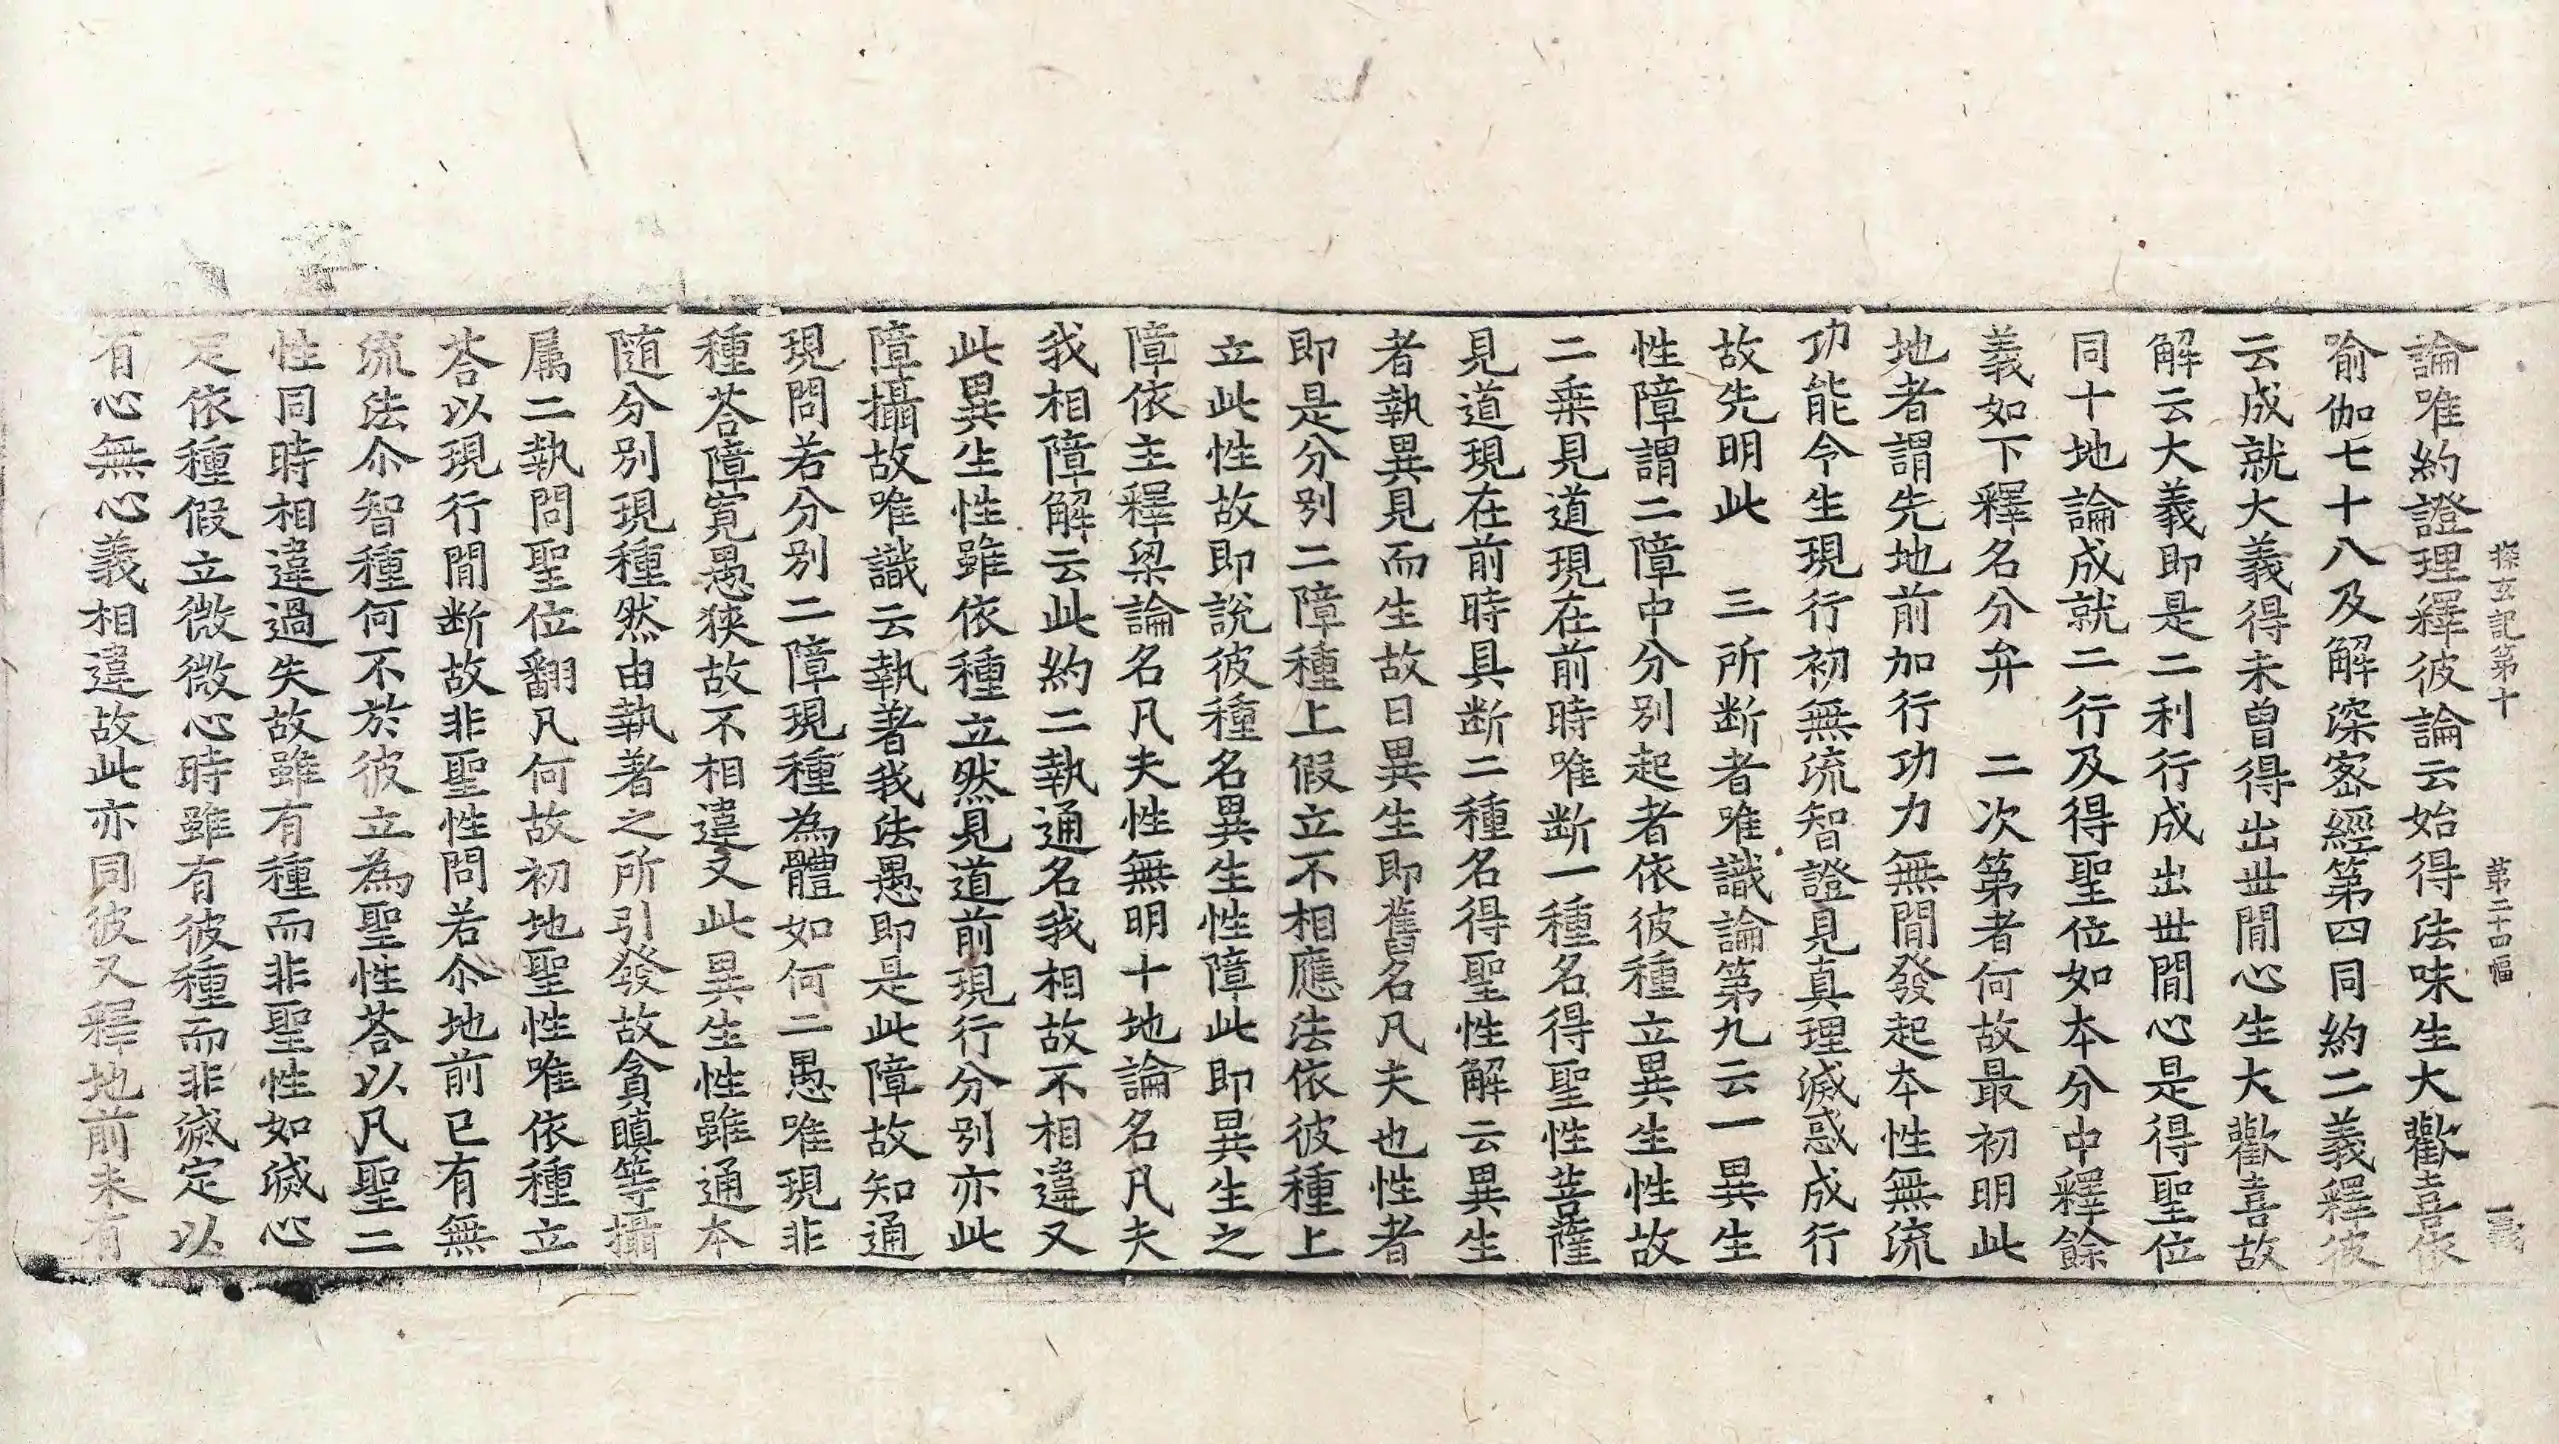 探玄記第十　第二十四幅　義
論唯約證理釋彼論云始得法味生大歡喜依
喻伽七十八及解深宻經第四同約二義釋彼
云成就大義得未曾得出丗間心生大歡喜故
解云大義即是二利行成出丗間心是得聖位
同十地論成就二行及得聖位如本分中釋餘
義如下釋名分弁　二次第者何故最初明此
地者謂先地前加行功力無間發起本性無流
功能令生現行初無流智證見真理滅惑成行
故先明此　三所断者唯識論第九云一異生
性障謂二障中分别起者依彼種立異生性故
二乗見道現在前時唯断一種名得聖性菩薩
見道現在前時具断二種名得聖性解云異生
者執異見而生故曰異生即舊名凡夫也性者
即是分别二障種上假立不相應法依彼種上
立此性故即說彼種名異生性障此即異生之
障依主釋梁論名凡夫性無明十地論名凡夫
我相障解云此約二執通名我相故不相違又
此異生性雖依種立然見道前現行分别亦此
障攝故唯識云執著我法愚即是此障故知通
現問若分别二障現種為體如何二愚唯現非
種荅障寛愚狹故不相違又此異生性雖通本
随分别現種然由執著之所引發故貪瞋等攝
属二執問聖位翻凡何故初地聖性唯依種立
荅以現行間断故非聖性問若尒地前已有無
流法尒智種何不於彼立為聖性荅以凡聖二
性同時相違過失故雖有種而非聖性如滅心
定依種假立微微心時雖有彼種而非滅定以
有心無心義相違故此亦同彼又釋地前未有